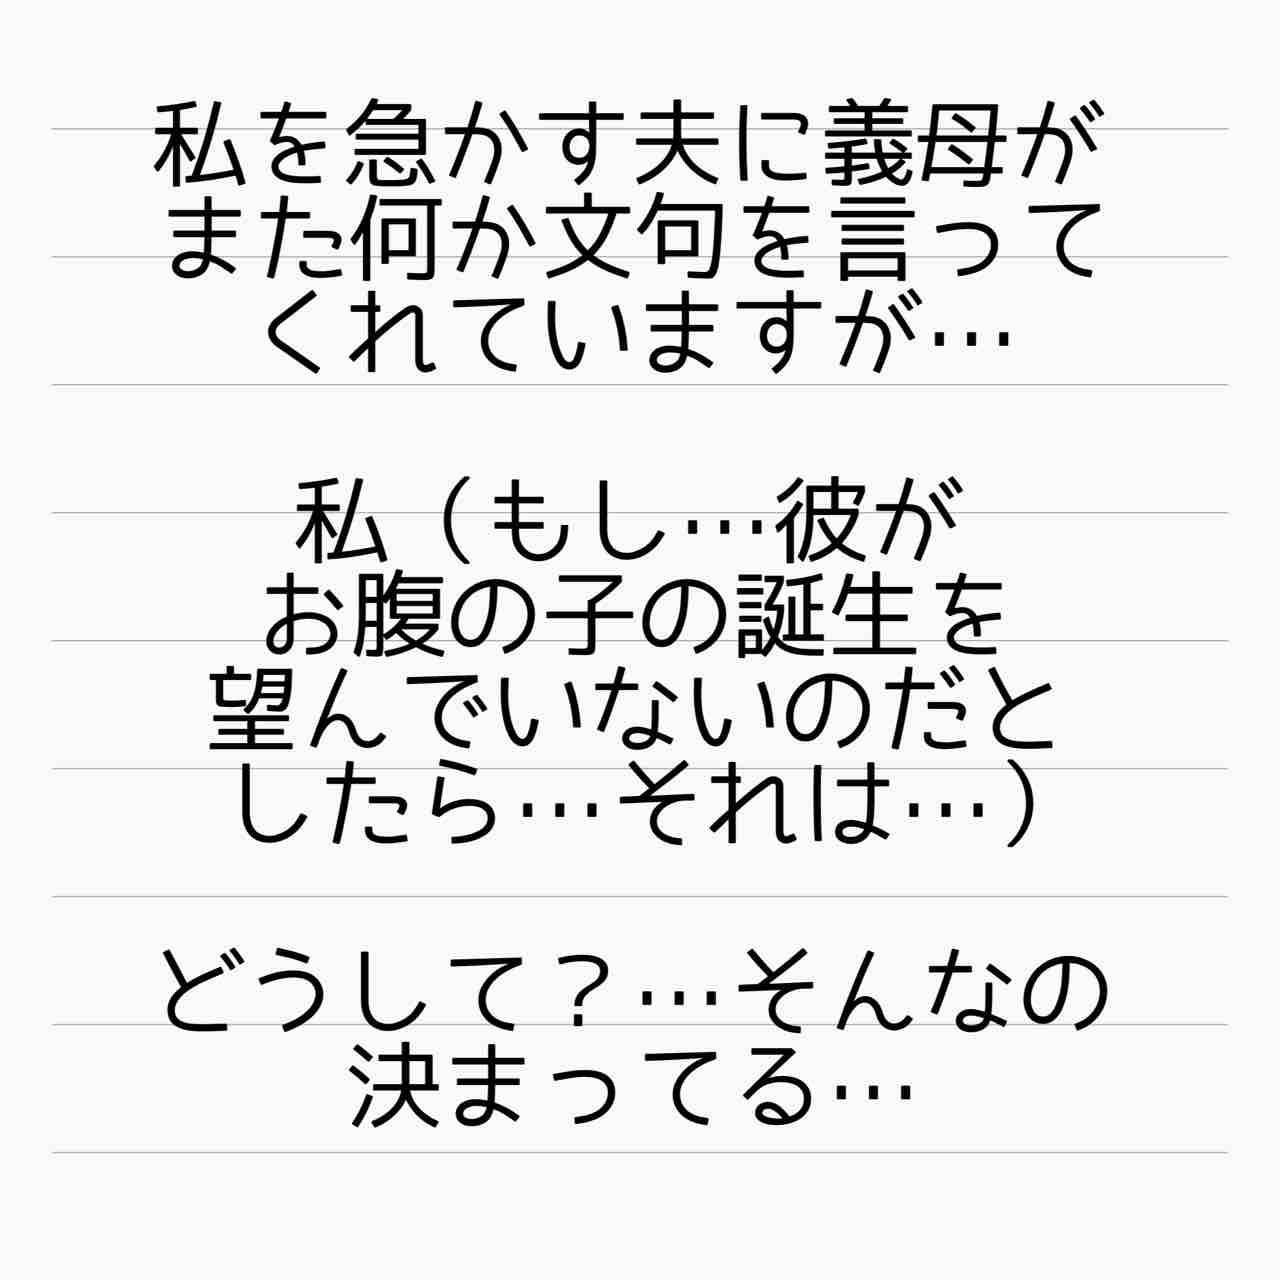 私を急かす夫に義母が
また何か文句を言って
くれていますが…
私（もし…彼が
お腹の子の誕生を
望んでいないのだと
したら…それは…）
どうして？…そんなの
決まってる…